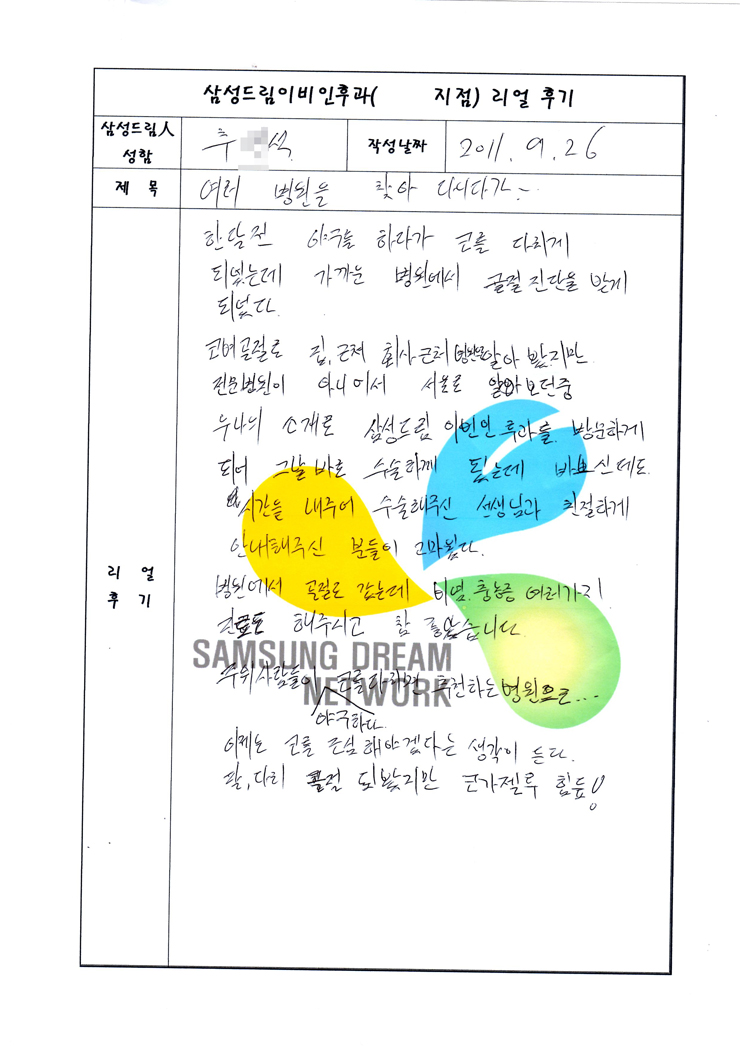 삼성드림이비인후과(      지점) 리얼 후기
삼성드림人 성함
추 석
작성날짜
2011. 9. 26
제 목
여러 병원을 찾아 다니다가~
리 얼 후 기
한달전 야구를 하다가 코를 다치게
되었는데 가까운 병원에서 골절진단을 받게
되었다.
코뼈골절로 집,근처 회사근처 병원을 알아 봤지만
전문병원이 아니어서 서울로 알아보던중
누나의 소개로 삼성드림 이빈인후과를 방문하게
되어 그날 바로 수술하게 됬는데 바쁘신데도
시간을 내주어 수술해주신 선생님과 친절하게
안내해주신 분들이 고마웠다.
병원에서 골절로 갔는데 비염.충농증 여러가지
진료도 해주시고 참 좋았습니다
주위사람들이 야구하다 코를다치면 추천하는 병원으로...
이제는 코를 조심해야겠다는 생각이 든다.
팔,다리 골절 되봤지만 코가젤루 힘듦!
SAMSUNG DREAM
NETWORK